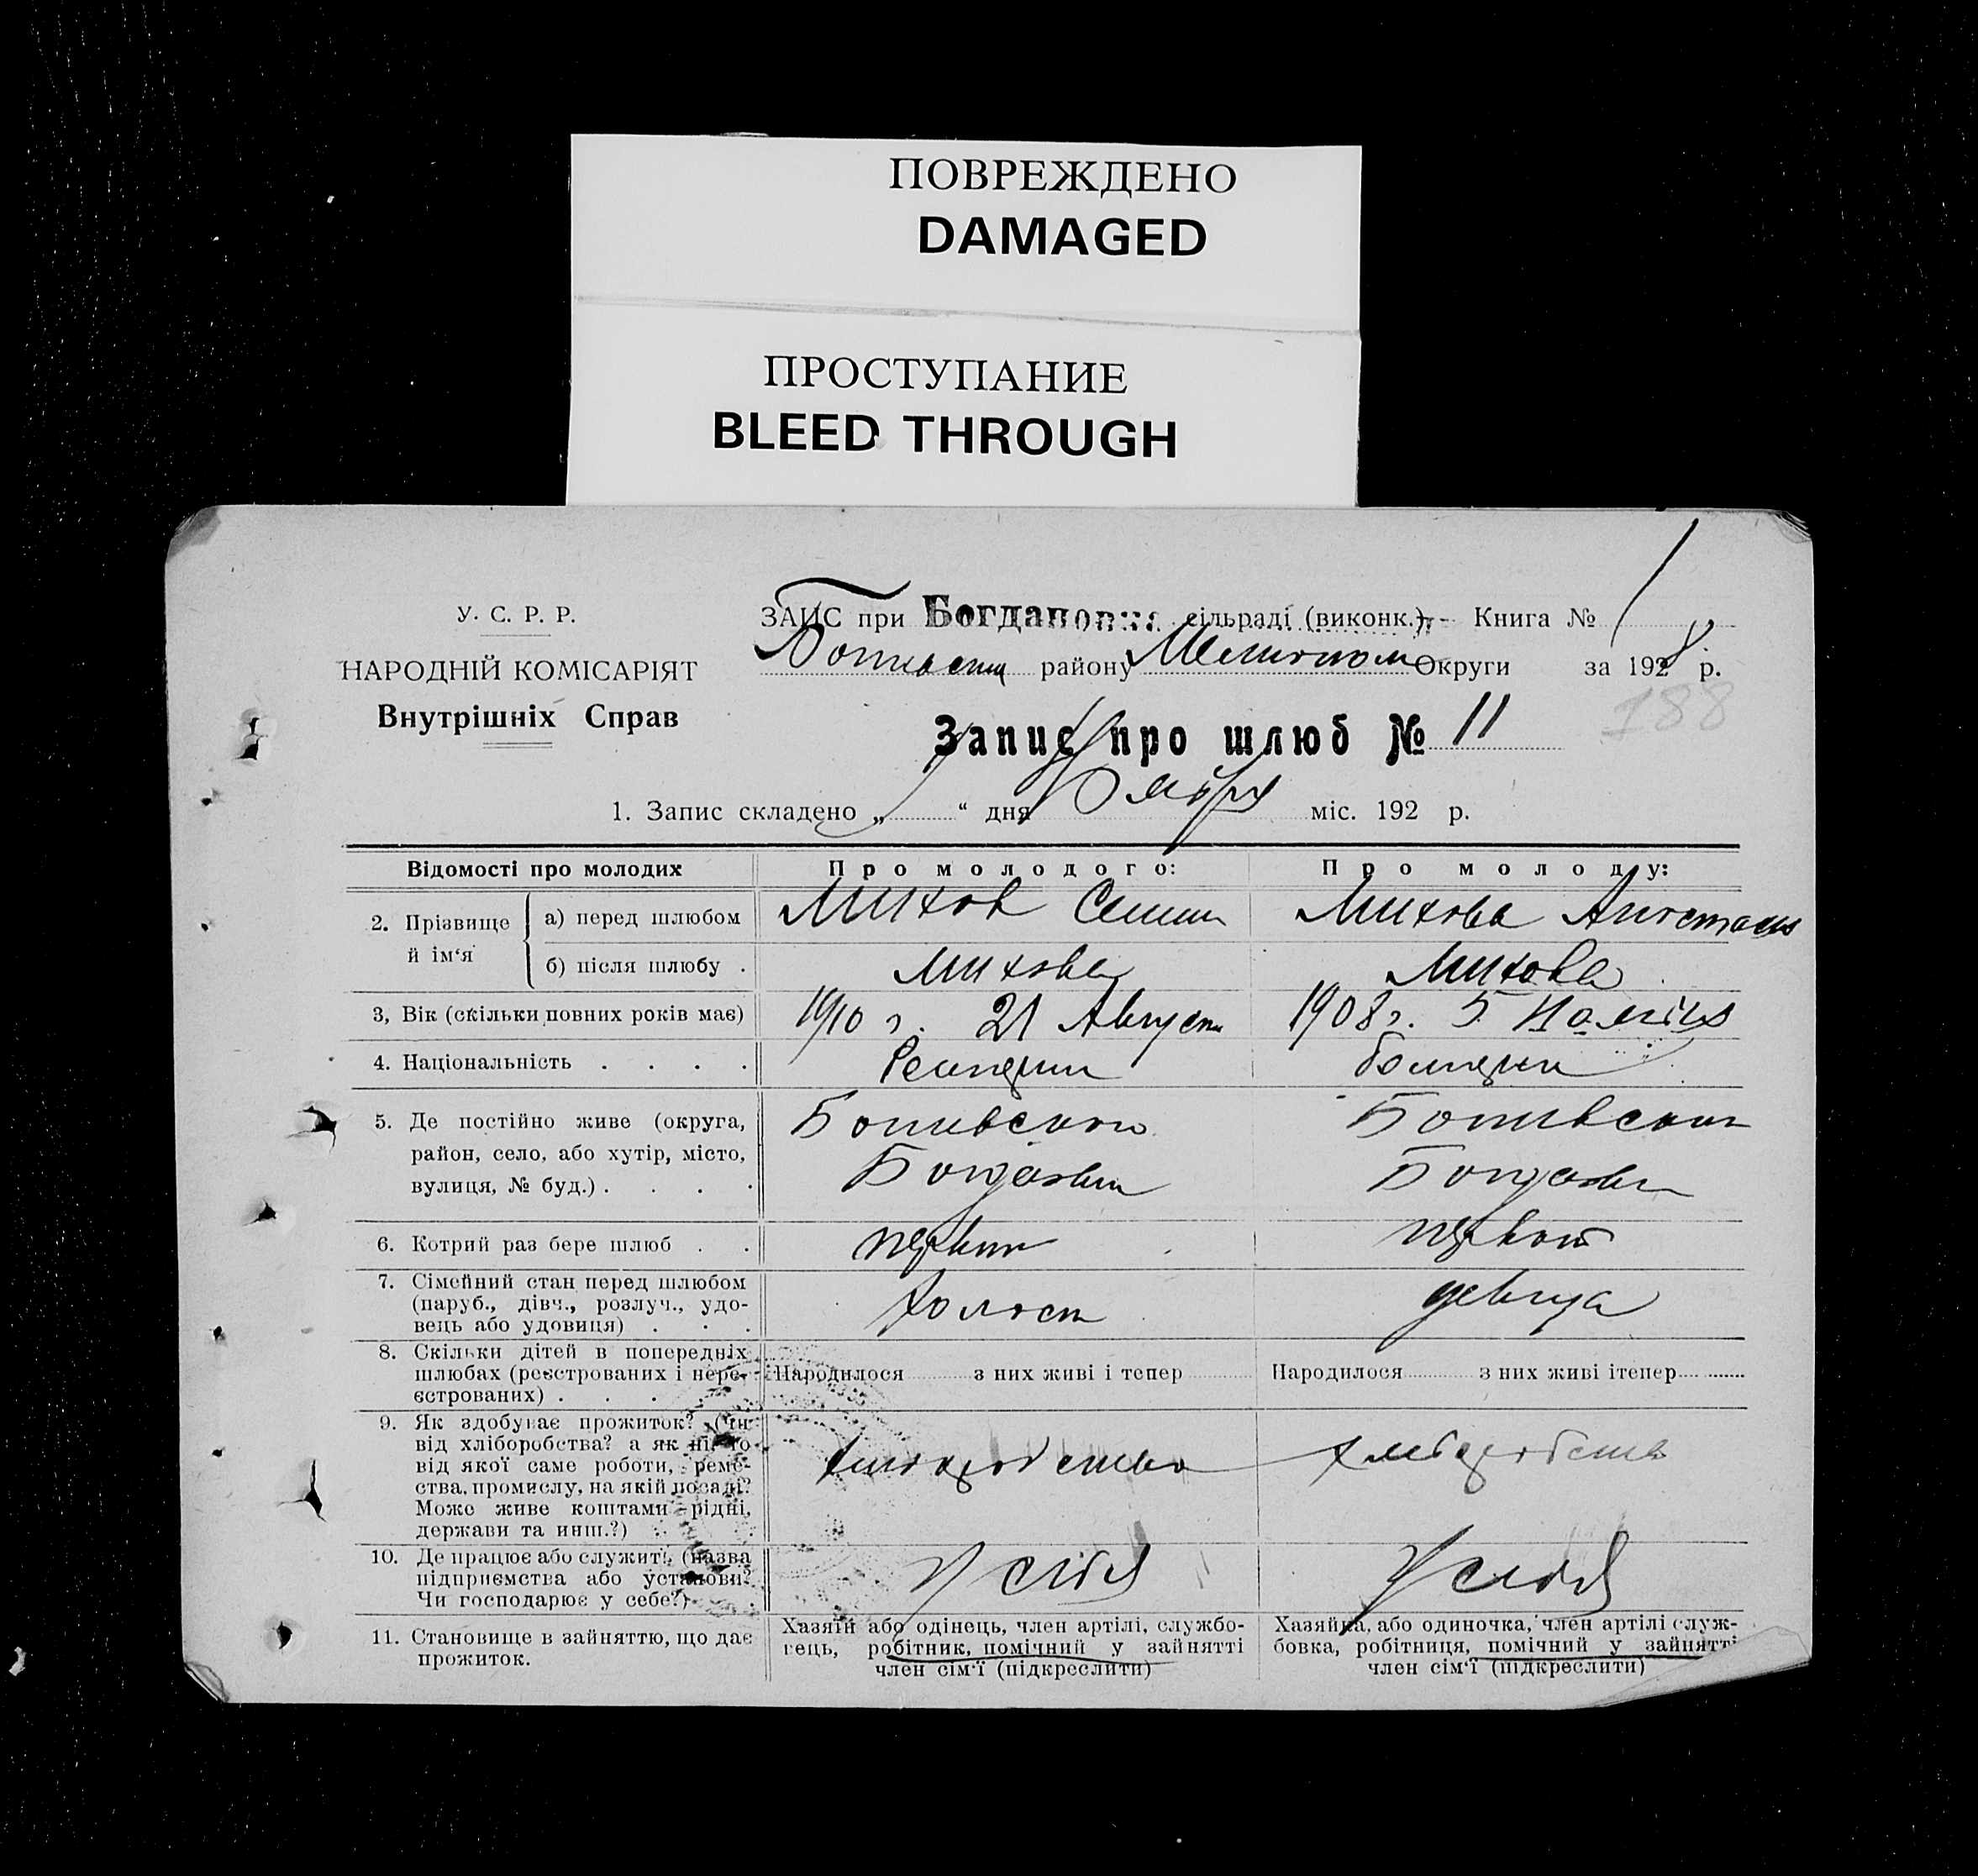 ПОВРЕЖДЕНО
DAMAGED
ПРОСТУПАНИЕ
BLEED THROUGH
У. С. Р. Р.
НАРОДНІЙ КОМІСАРІЯТ
Внутрішніх Справ
ЗАЙС при Богдановка сільраді (виконк.) Книга № 1
району Мелитопол Округи за 1928 р.
188
Запис про шлюб № 11
1. Запис складено „ “ дня міс. 192 р.
Відомості про молодих
Про молодого:
Про молоду:
2. Прізвище й ім‘я
а) перед шлюбом
Митов Семен
Митова Анастасия
б) після шлюбу .
Митова
Митова
3, Вік (скільки повних років має)
1910 г. 21 Августа
1908 г. 5
4. Національність . . . .
болгарин
болгарка
5. Де постійно живе (округа,
район, село, або хутір, місто,
вулиця, № буд.) . . . .
Ботиевского
Богдановка
Ботиевского
Богдановка
6. Котрий раз бере шлюб . .
первый
первый
7. Сімейний стан перед шлюбом
(паруб., дівч., розлуч., удо-
вець або удовиця) . . .
холост
девица
8. Скільки дітей в попередніх
шлюбах (реєстрованих і нере-
єстрованих) . . . .
Народилося з них живі і тепер
Народилося з них живі ітепер
9. Як здобуває прожиток? (чи
від хліборобства? а як ні, то
від якої саме роботи, реме-
ства, промислу, на якій посаді?
Може живе коштами рідні,
держави та инш.?) . .
хлібородство
хлебородство
10. Де працює або служить (назва
підприємства або установи?
Чи господарює у себе?)
У себя
У себя
11. Становище в зайняттю, що дає
прожиток.
Хазяїн або одінець, член артілі, службо-
вець, робітник, помічний у зайнятті
член сім‘ї (підкреслити)
Хазяйка, або одиночка, член артілі служ-
бовка, робітниця, помічний у зайнятті
член сім‘ї (підкреслити)